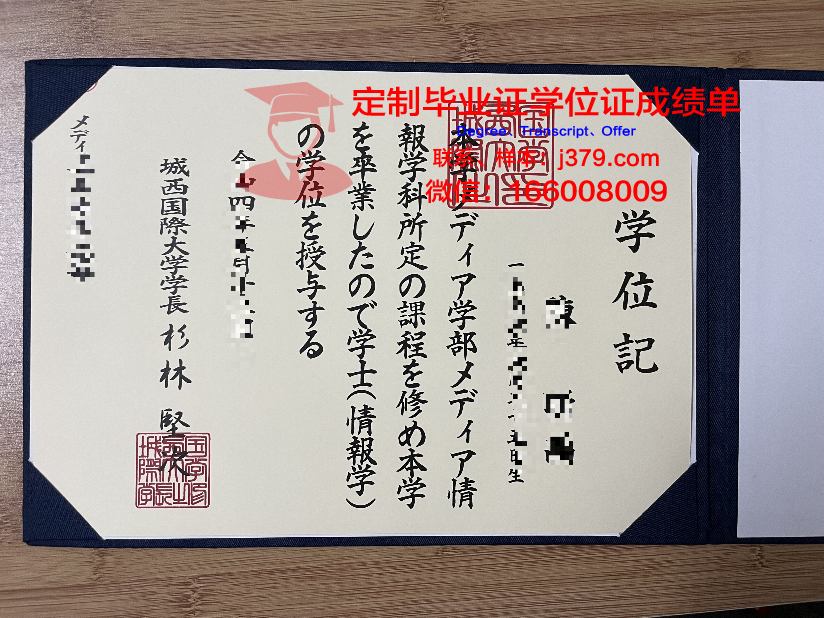 定制毕业证学位证成绩单
Degree、Transcript、Offer
j379.com
微信：166008009
学位記
陳
生
ディア学部メディア情
報学科所定の課程を修め本学
を卒業したので学士（情報学）
の学位を授与する
城西国際大学学長 杉林 堅次
メディ